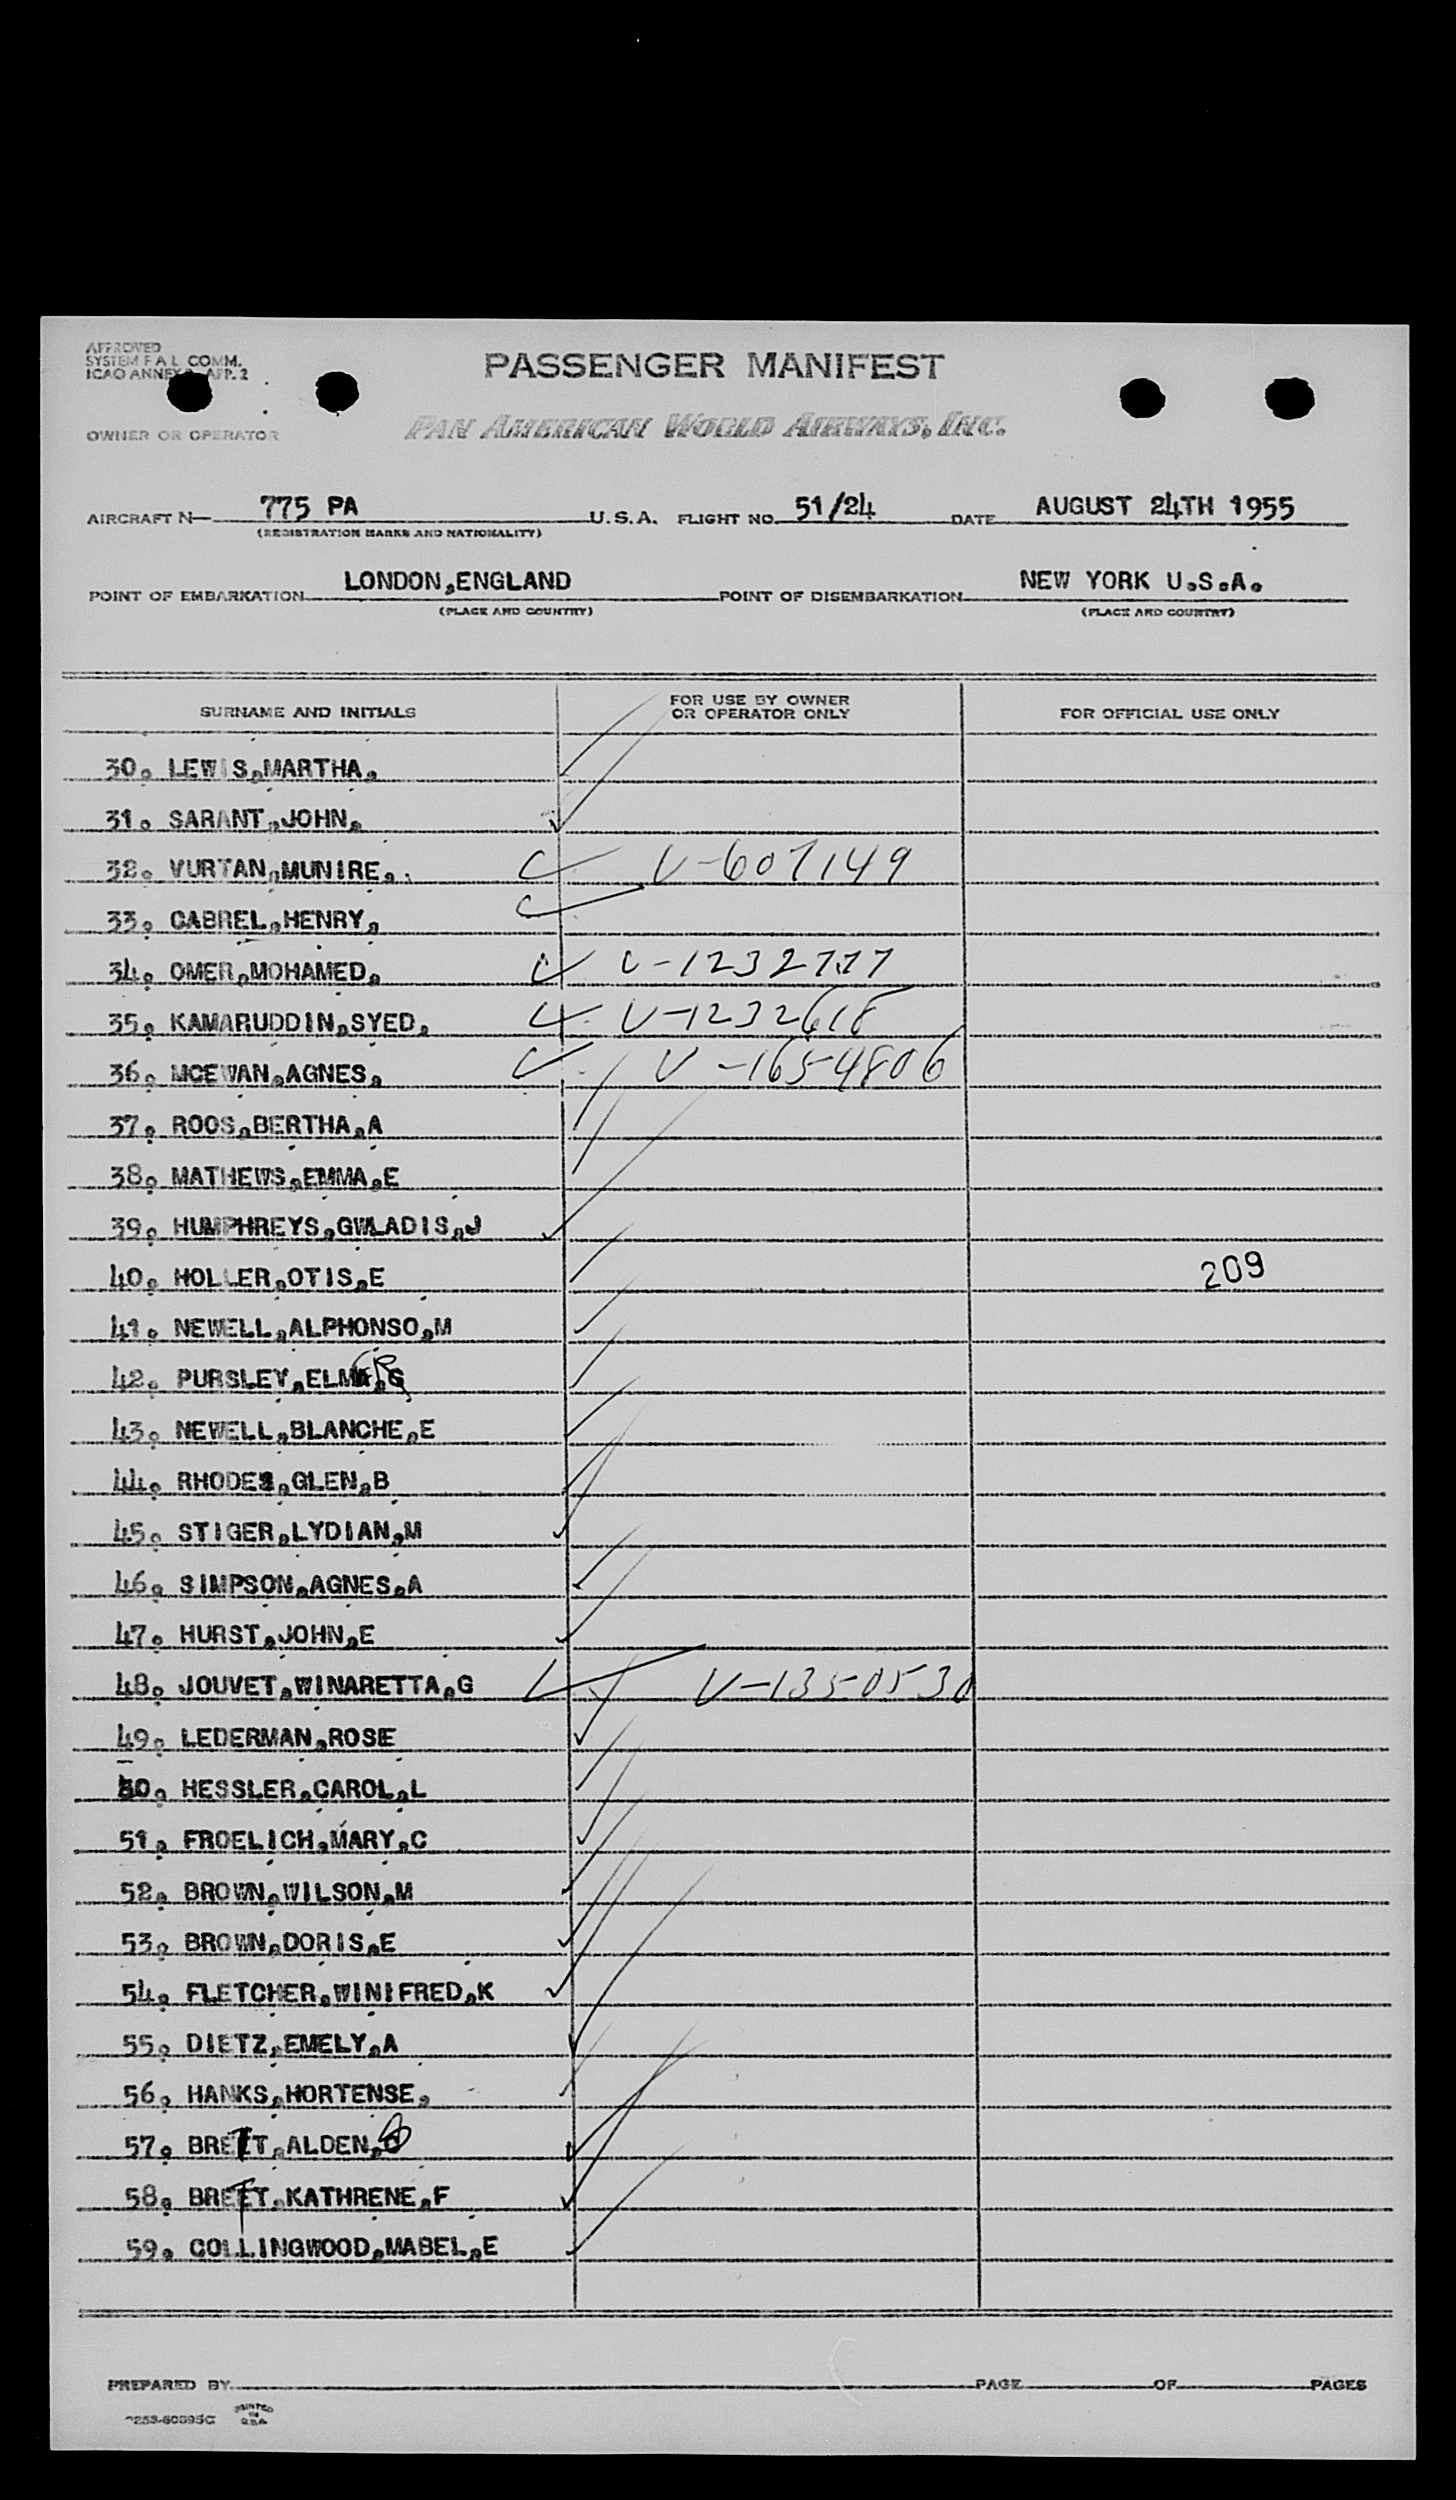 APPROVED
SYSTEM F A L COMM.
ICAO ANNEX APP. 2
PASSENGER MANIFEST
OWNER OR OPERATOR PAN AMERICAN WORLD AIRWAYS, INC.
AIRCRAFT N— 775 PA U.S.A. FLIGHT NO. 51/24 DATE AUGUST 24TH 1955
(REGISTRATION MARKS AND NATIONALITY)
POINT OF EMBARKATION LONDON,ENGLAND POINT OF DISEMBARKATION NEW YORK U.S.A.
(PLACE AND COUNTRY) (PLACE AND COUNTRY)
SURNAME AND INITIALS FOR USE BY OWNER OR OPERATOR ONLY FOR OFFICIAL USE ONLY
30. LEWIS,MARTHA.
31. SARANT,JOHN.
32. VURTAN,MUNIRE. V-607149
33. CABREL,HENRY,
34. OMER,MOHAMED. V-1232777
35. KAMARUDDIN,SYED. V-1232618
36. MCEWAN,AGNES. V-1654806
37. ROOS,BERTHA,A
38. MATHEWS,EMMA,E
39. HUMPHREYS,GWLADIS,J
40. HOLLER,OTIS,E 209
41. NEWELL,ALPHONSO,M
42. PURSLEY,ELMER,G
43. NEWELL,BLANCHE,E
44. RHODES,GLEN,B
45. STIGER,LYDIAN,M
46. SIMPSON,AGNES,A
47. HURST,JOHN,E
48. JOUVET,WINARETTA,G V-1350530
49. LEDERMAN,ROSE
50. HESSLER,CAROL,L
51. FROELICH,MARY,C
52. BROWN,WILSON,M
53. BROWN,DORIS,E
54. FLETCHER,WINIFRED,K
55. DIETZ,EMELY,A
56. HANKS,HORTENSE,
57. BRETT,ALDEN,
58. BRETT,KATHRENE,F
59. COLLINGWOOD,MABEL,E
PREPARED BY PAGE OF PAGES
PRINTED IN U.S.A.